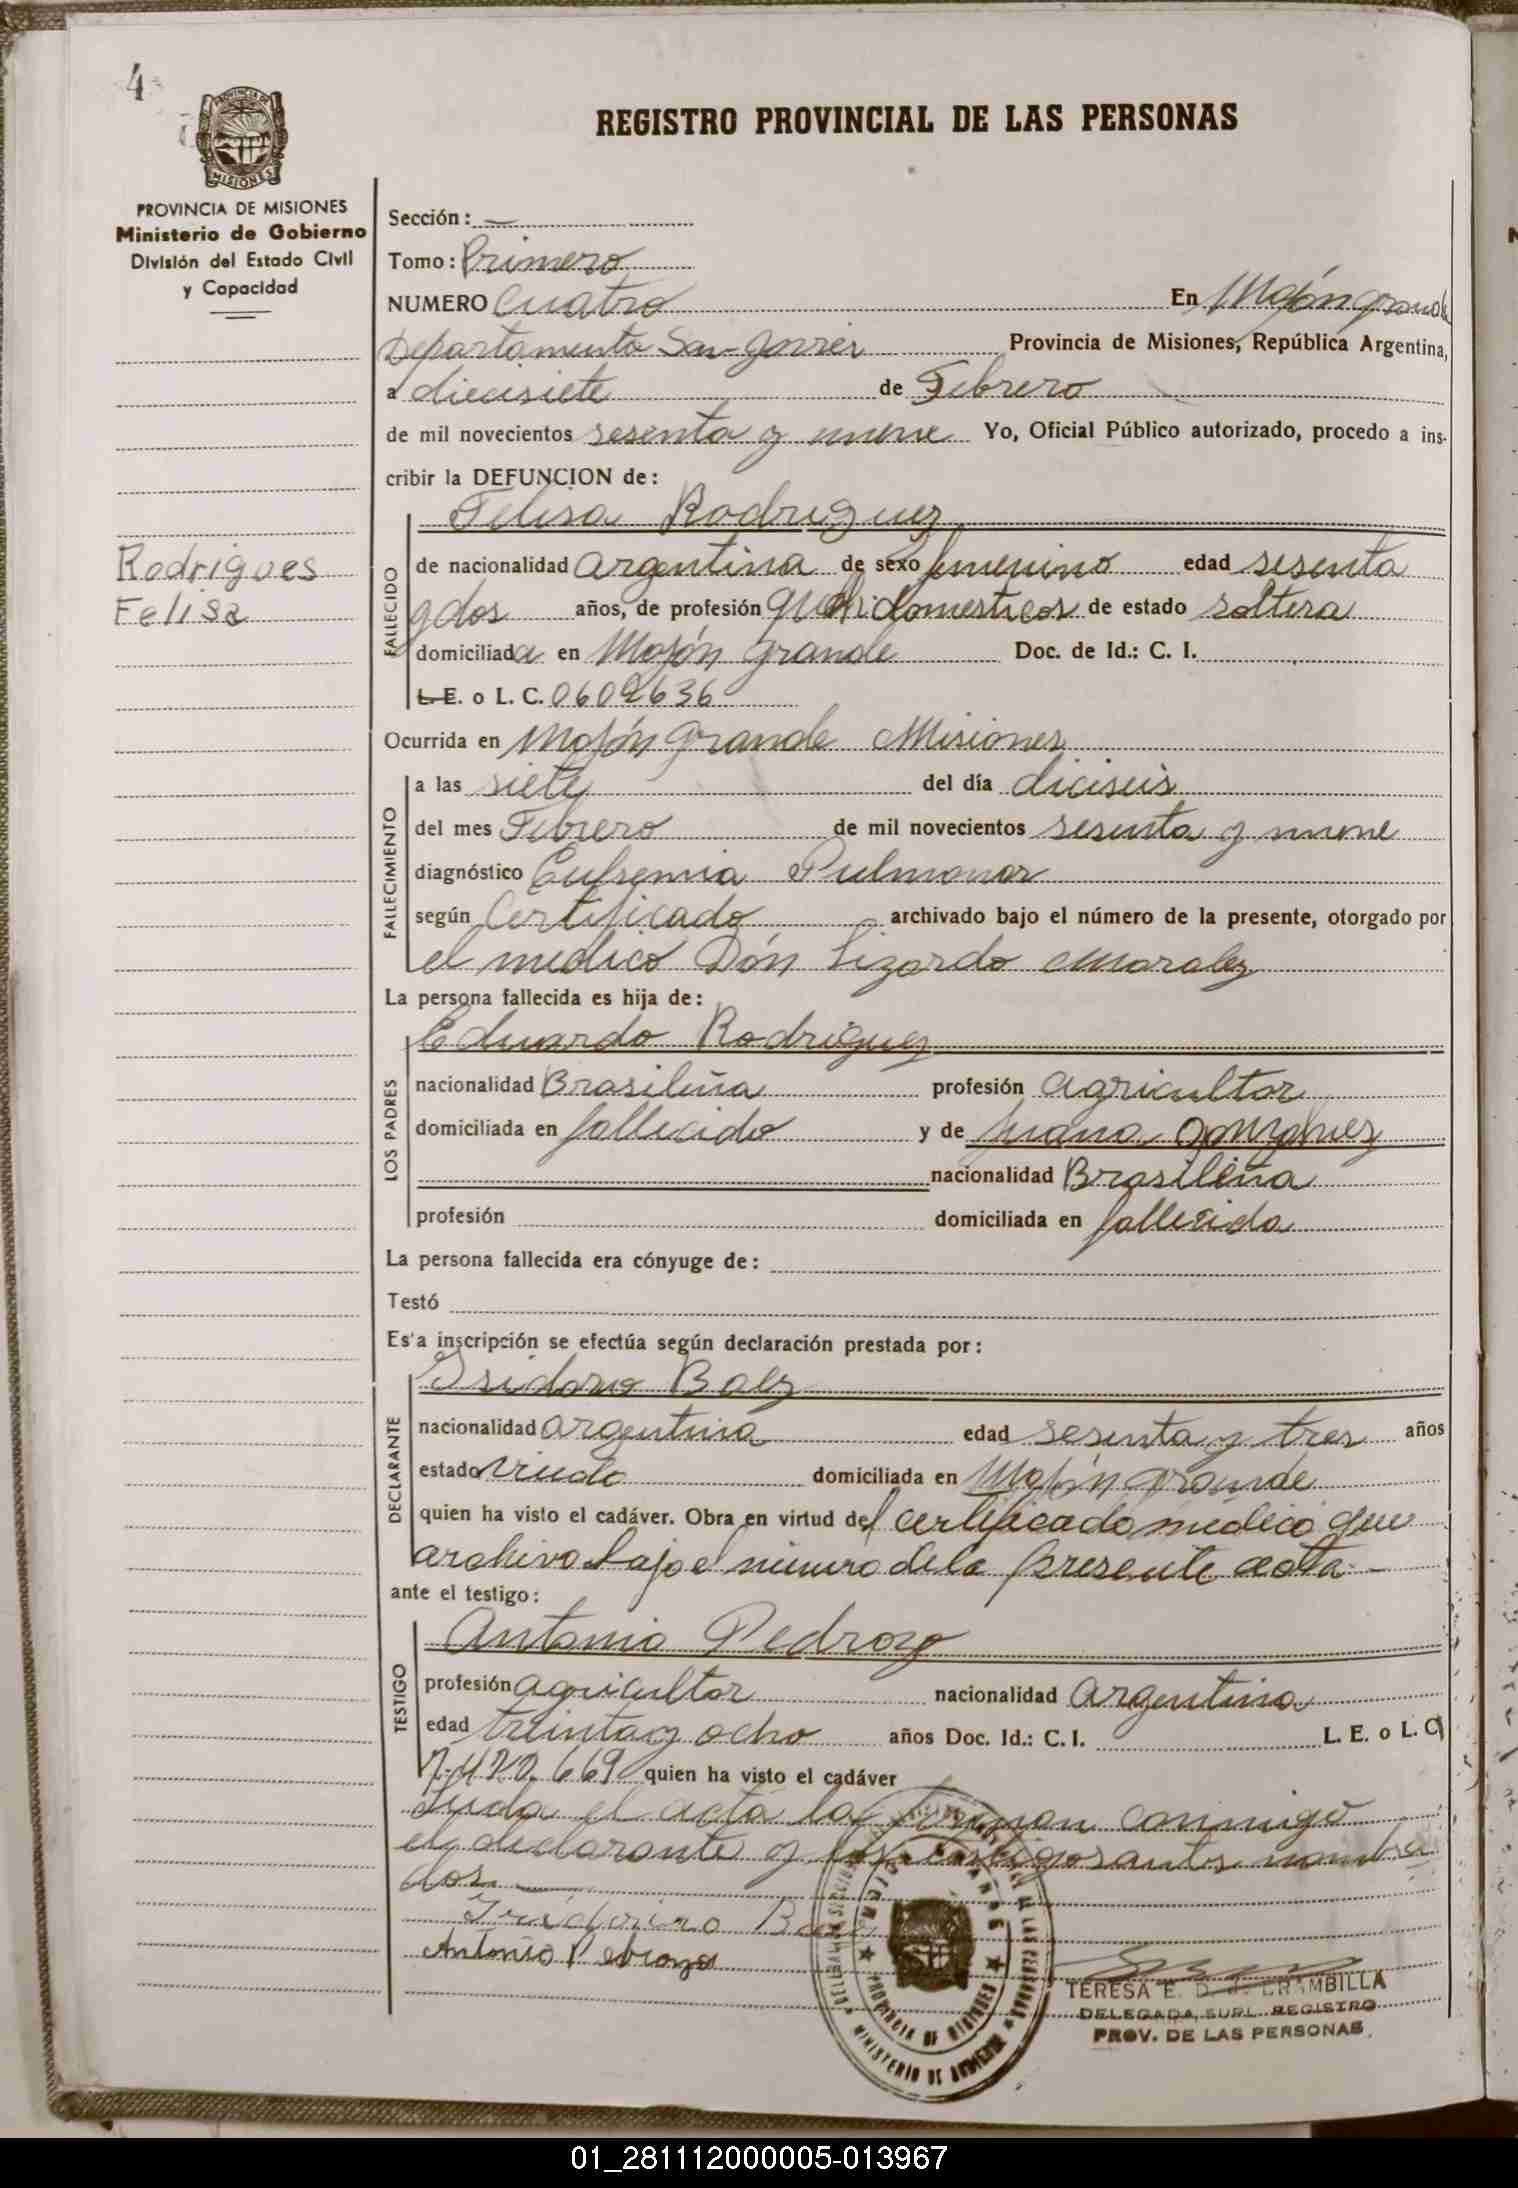 4
PROVINCIA DE
MISIONES
REGISTRO PROVINCIAL DE LAS PERSONAS
PROVINCIA DE MISIONES
Ministerio de Gobierno
División del Estado Civil
y Capacidad
Sección: —
Tomo: Primero
NUMERO Cuatro En Mojón grande
Departamento San Javier Provincia de Misiones, República Argentina,
a diecisiete de Febrero
de mil novecientos sesenta y nueve Yo, Oficial Público autorizado, procedo a ins-
cribir la DEFUNCION de:
Felisa Rodriguez
Rodrigues
Felisa
FALLECIDO
de nacionalidad argentina de sexo femenino edad sesenta
y dos años, de profesión domesticos de estado soltera
domiciliada en Mojón grande Doc. de Id.: C. I.
L.E. o L. C. 0602636
Ocurrida en Mojón grande Misiones
FALLECIMIENTO
a las siete del día diciseis
del mes Febrero de mil novecientos sesenta y nueve
diagnóstico Pulmonar
según Certificado archivado bajo el número de la presente, otorgado por
el medico Dón Lizardo Moralez
La persona fallecida es hija de:
LOS PADRES
Eduardo Rodriguez
nacionalidad Brasileña profesión agricultor
domiciliada en fallecido y de Juana
nacionalidad Brasileña
profesión domiciliada en fallecida
La persona fallecida era cónyuge de:
Testó
Esta inscripción se efectúa según declaración prestada por:
DECLARANTE
Isidorio Baez
nacionalidad argentina edad sesenta y tres años
estado viudo domiciliada en Mojón grande
quien ha visto el cadáver. Obra en virtud del certificado médico que
archivo bajo el número de la presente acta -
ante el testigo:
TESTIGO
Antonio Pedrozo
profesión agricultor nacionalidad argentina
edad treinta y ocho años Doc. Id.: C. I. L. E. o L. C.
7.480.669 quien ha visto el cadáver
Leida el acta la firman conmigo
el declarante y los testigos antes nombra
dos. —
Antonio Pedrozo
PROVINCIA DE MISIONES
MINISTERIO DE
TERESA E. D. J. CRAMBILLA
DELEGADA SUPL. REGISTRO
PROV. DE LAS PERSONAS
01_281112000005-013967